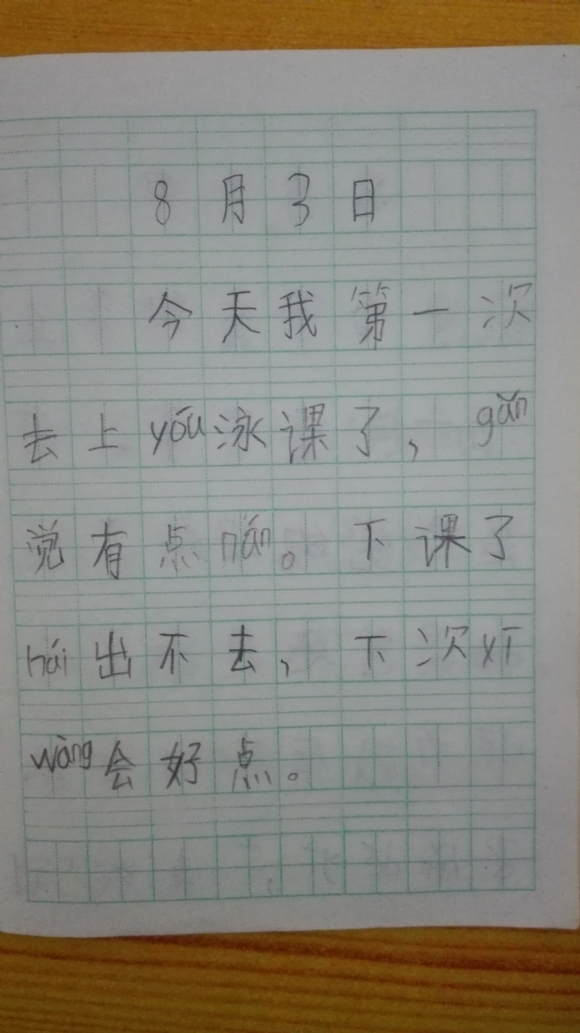 8月3日
今天我第一次
去上yóu泳课了，gǎn
觉有点nán。下课了
hái出不去，下次xī
wàng会好点。